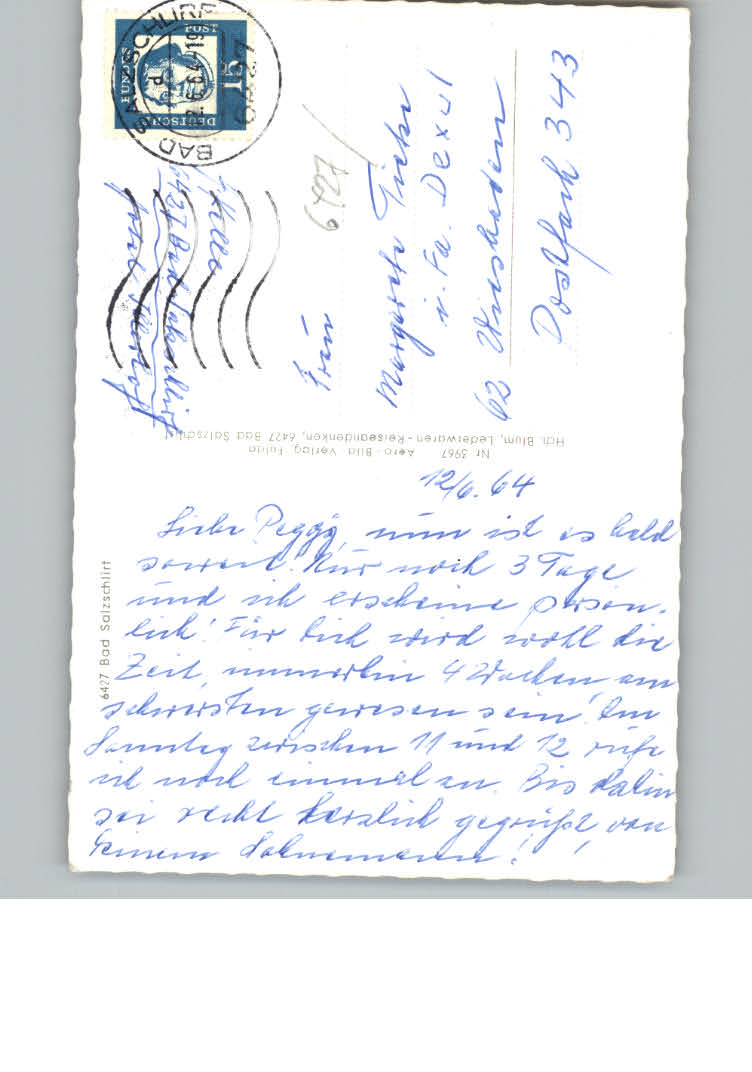 12/6. 64
Liebe Peggÿ, nun ist es bald
soweit! Nur noch 3 Tage
und ich erscheine persön-
lich! Für Dich wird wohl die
Zeit, immerhin 4 Wochen, am
schwersten gewesen sein! Am
Sonntag zwischen 11 und 12 rufe
ich noch einmal an. Bis dahin
sei recht herzlich gegrüßt, von
Deinem
6427 Bad Salzschlirf
Nr 5967 Aero-Bild Verlag, Fulda
Hdl. Blum, Lederwaren-Reiseandenken, 6427 Bad Salzschlirf
Frau
Margarete
i. Fa. Dexul
62 Wiesbaden
Postfach 343
6427
6427 Bad Salzschlirf
Hotel
BAD SALZSCHLIRF
DEUTSCHE
BUNDES
POST
15